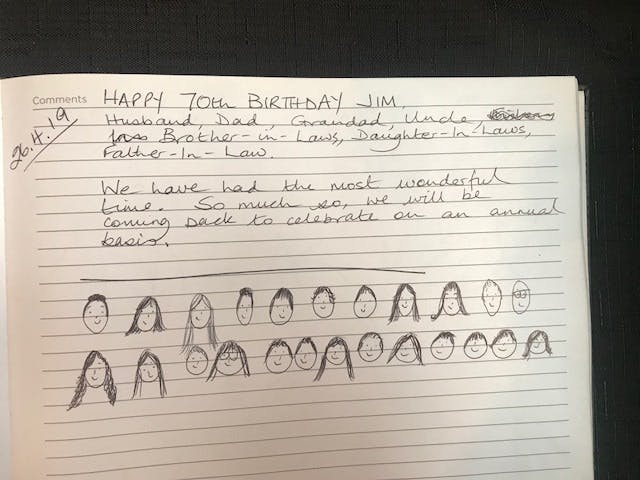 Comments HAPPY 70th BIRTHDAY JIM.
26.4.19
Husband, Dad, Grandad, Uncle
Brother-in-Laws, Daughter-In-Laws,
Father-In-Law.
We have had the most wonderful
time. So much so, we will be
coming back to celebrate on an annual
basis.